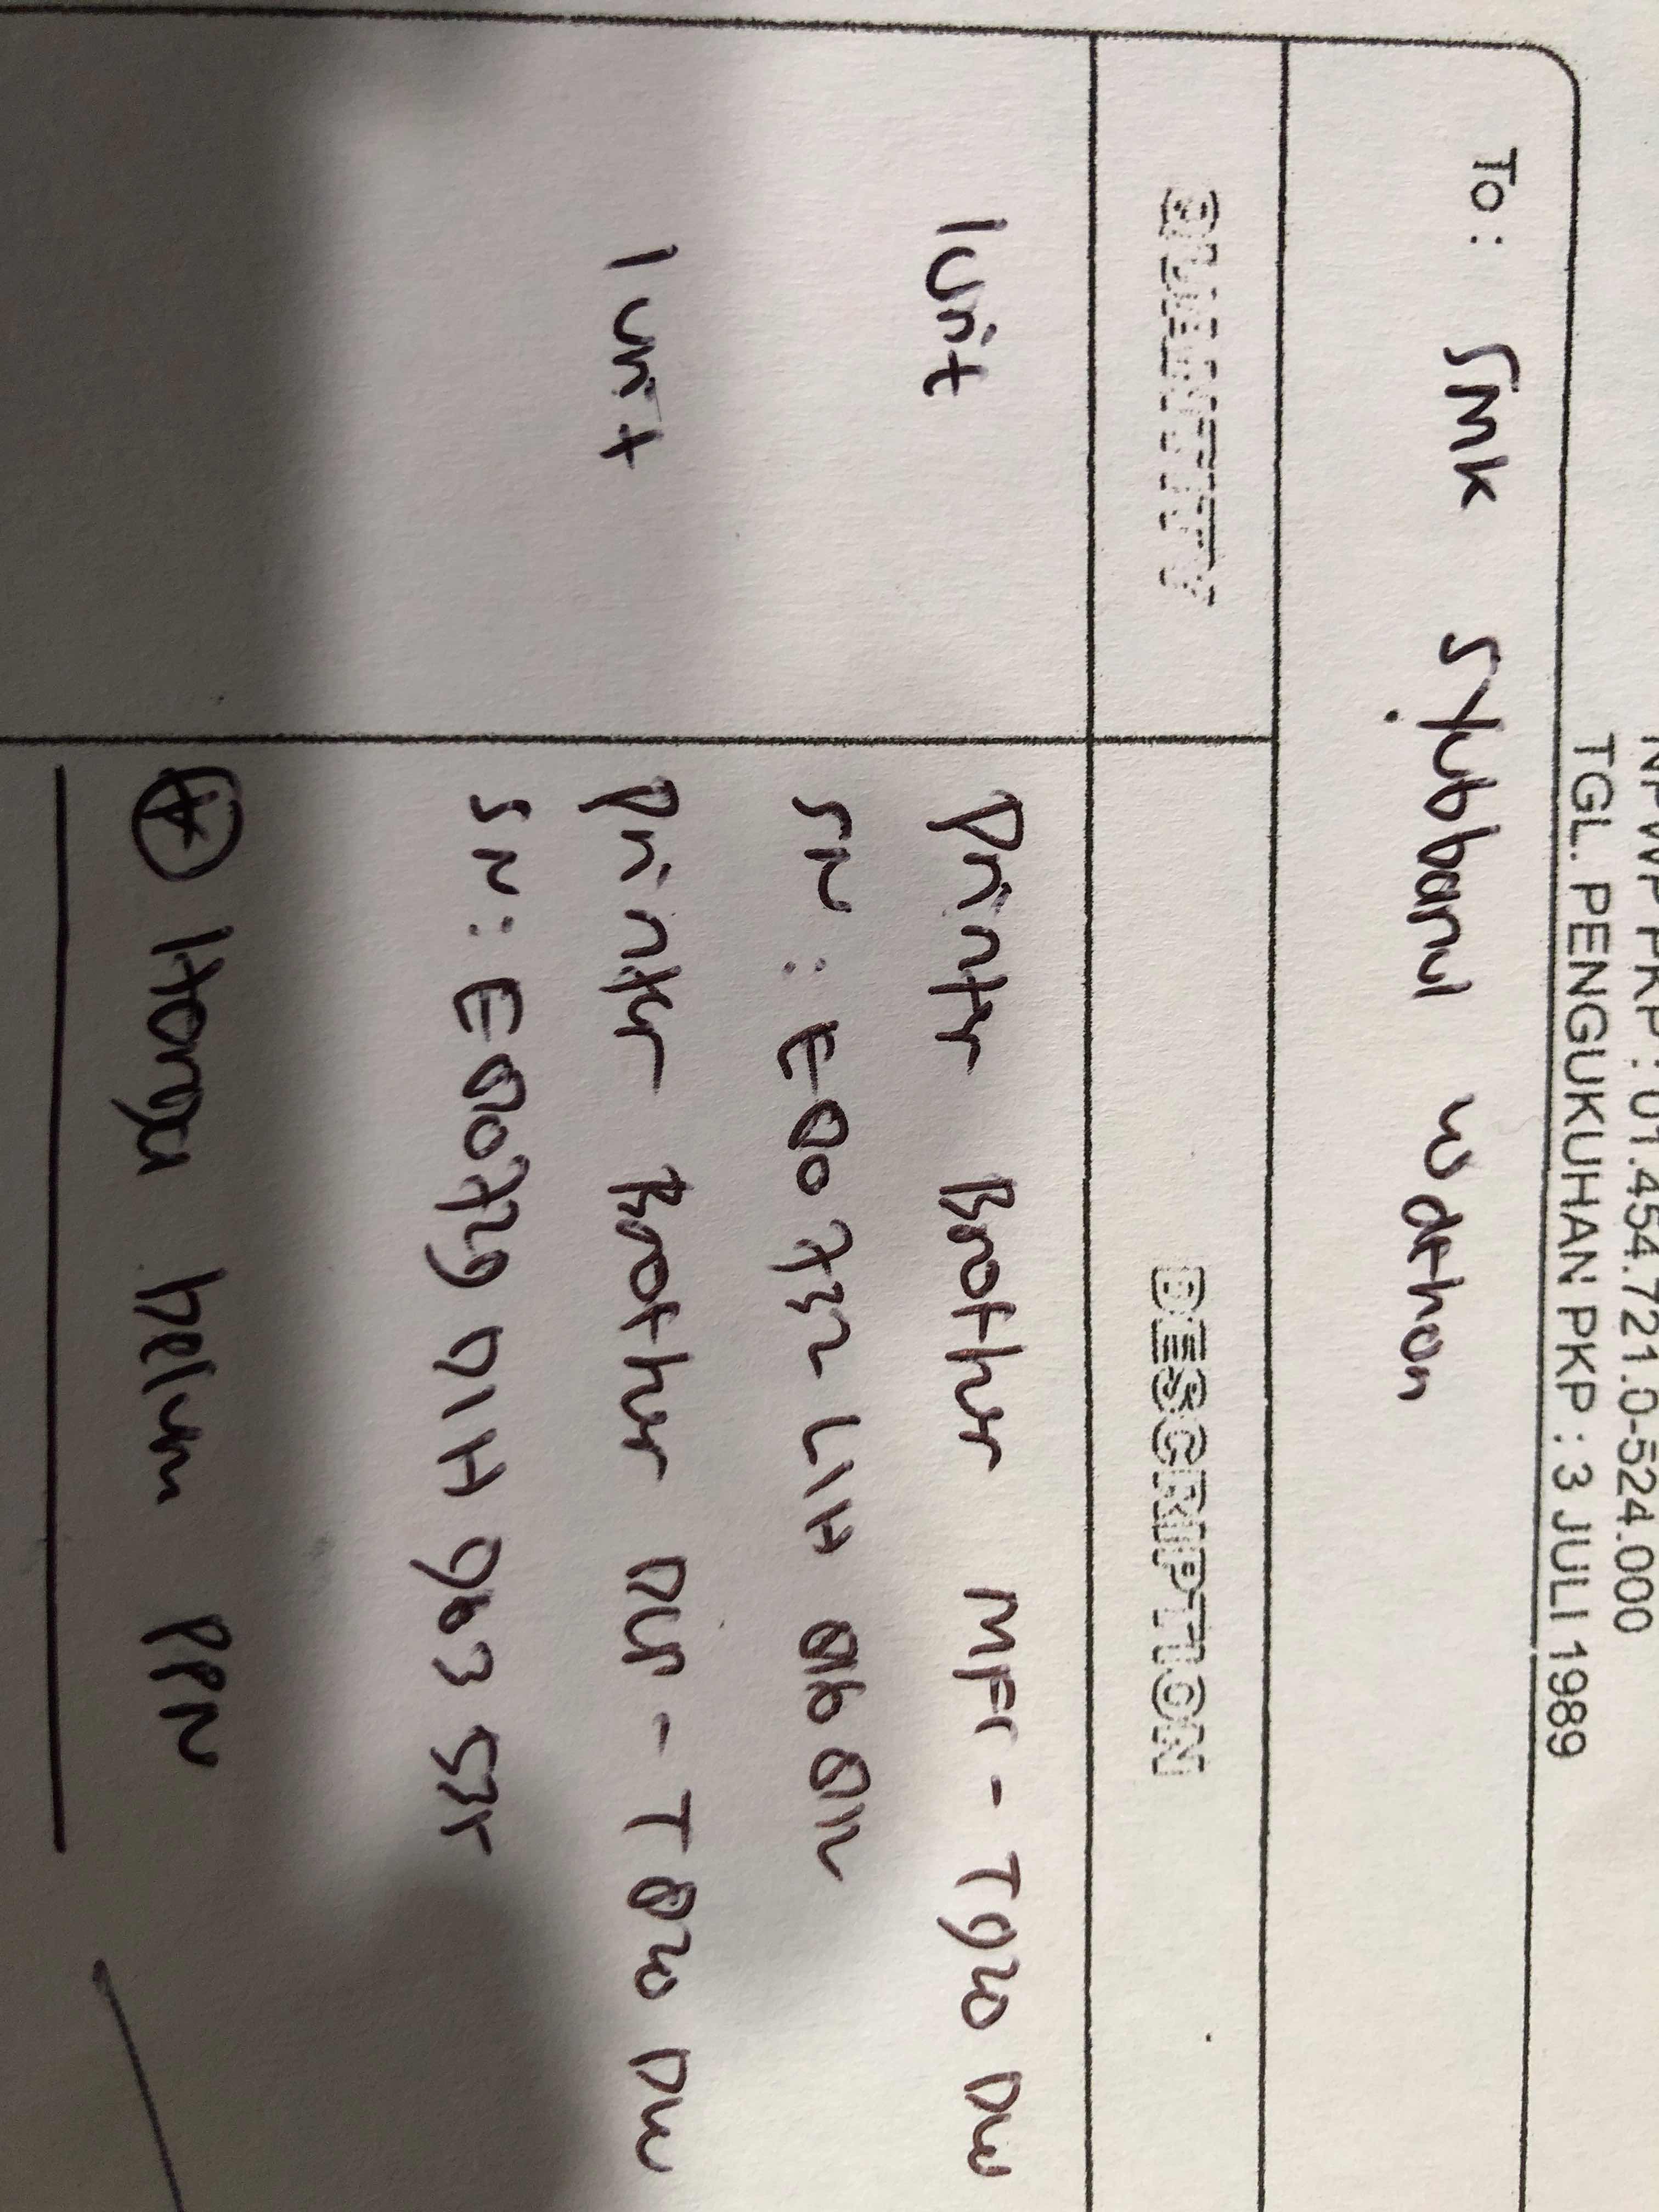 NPWP PKP : 01.454.721.0-524.000
TGL. PENGUKUHAN PKP : 3 JULI 1989
To : SMK Syubbanul Wathon
QUANTITY DESCRIPTION
1 Unit Printer Brother MFC - T920 DW
SN : E80732L1H
1 Unit Printer Brother DCP - T820 DW
SN : E80729D1H963535
* Harga belum PPN